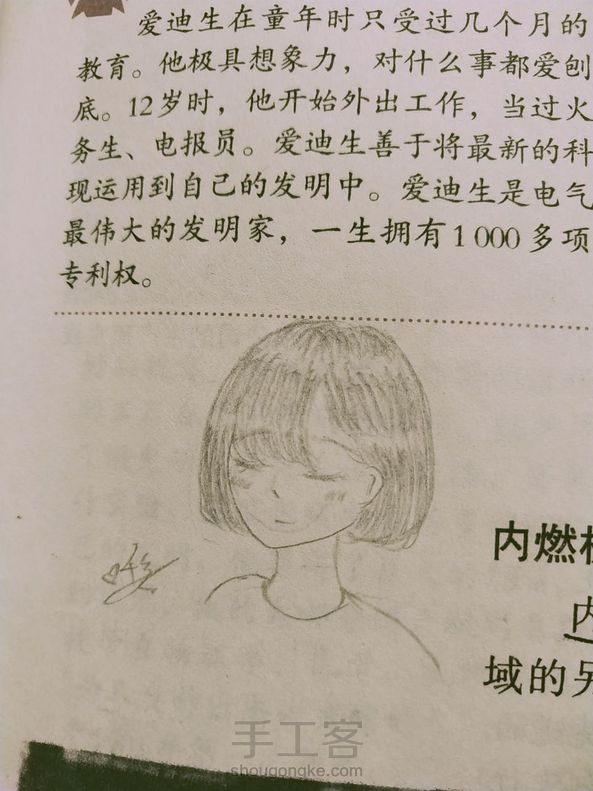 爱迪生在童年时只受过几个月的
教育。他极具想象力，对什么事都爱刨
底。12岁时，他开始外出工作，当过火
务生、电报员。爱迪生善于将最新的科
现运用到自己的发明中。爱迪生是电气
最伟大的发明家，一生拥有1000多项
专利权。
内燃机
内
域的另
手工客
shougongke.com